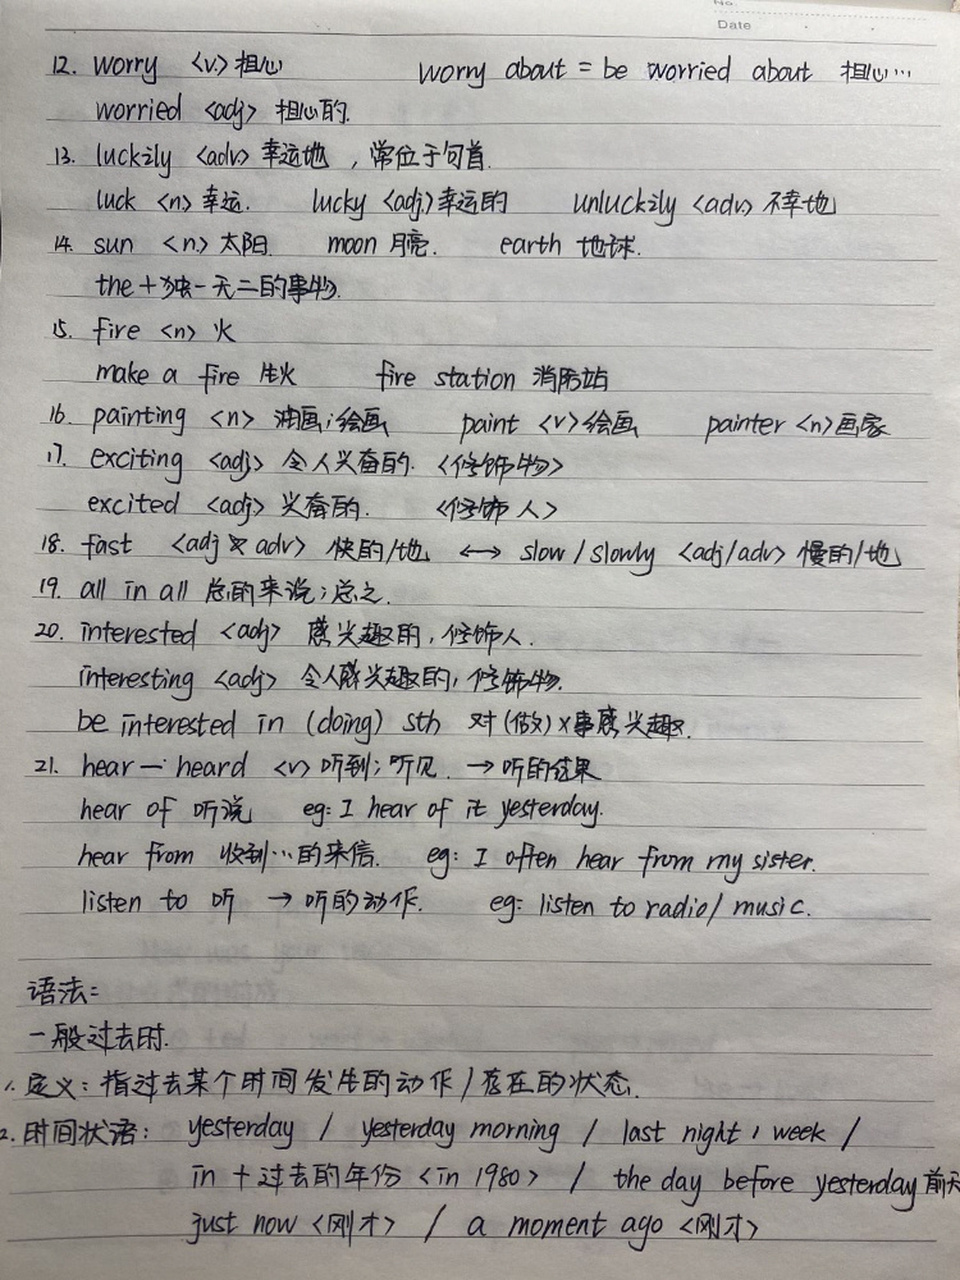 No.
Date
12. worry <v.> 担心 worry about = be worried about 担心…
worried <adj> 担心的.
13. luckily <adv.> 幸运地 , 常位于句首.
luck <n> 幸运. lucky <adj.> 幸运的 unluckily <adv.> 不幸地
14. sun <n.> 太阳. moon 月亮. earth 地球.
the + 独一无二的事物.
15. fire <n> 火
make a fire 生火 fire station 消防站
16. painting <n> 油画;绘画 paint <v> 绘画 painter <n> 画家
17. exciting <adj> 令人兴奋的. <修饰物>
excited <adj> 兴奋的. <修饰人>
18. fast <adj & adv> 快的/地 ↔ slow / slowly <adj/adv> 慢的/地
19. all in all 总的来说;总之.
20. interested <adj> 感兴趣的, 修饰人.
interesting <adj> 令人感兴趣的, 修饰物.
be interested in (doing) sth 对(做)×事感兴趣.
21. hear — heard <v> 听到;听见. → 听的结果
hear of 听说 eg: I hear of it yesterday.
hear from 收到…的来信. eg: I often hear from my sister.
listen to 听 → 听的动作. eg: listen to radio/ music.
语法:
一般过去时.
1. 定义: 指过去某个时间发生的动作/存在的状态.
2. 时间状语: yesterday / yesterday morning / last night, week /
in + 过去的年份 <in 1980> / the day before yesterday 前天
just now <刚才> / a moment ago <刚才>